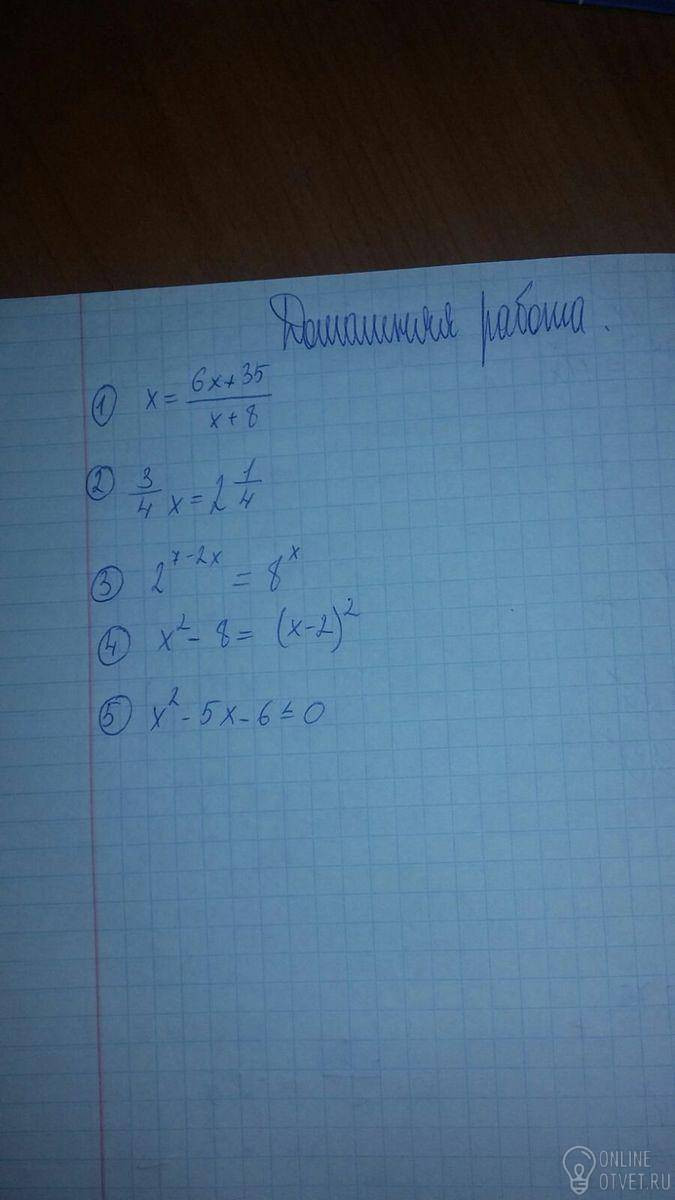 Домашняя работа.
① x = (6x+35)/(x+8)
② 3/4 x = 2 1/4
③ 2^(x-2x) = 8^x
④ x² - 8 = (x-2)²
⑤ x² - 5x - 6 ≤ 0
ONLINE
OTVET.RU